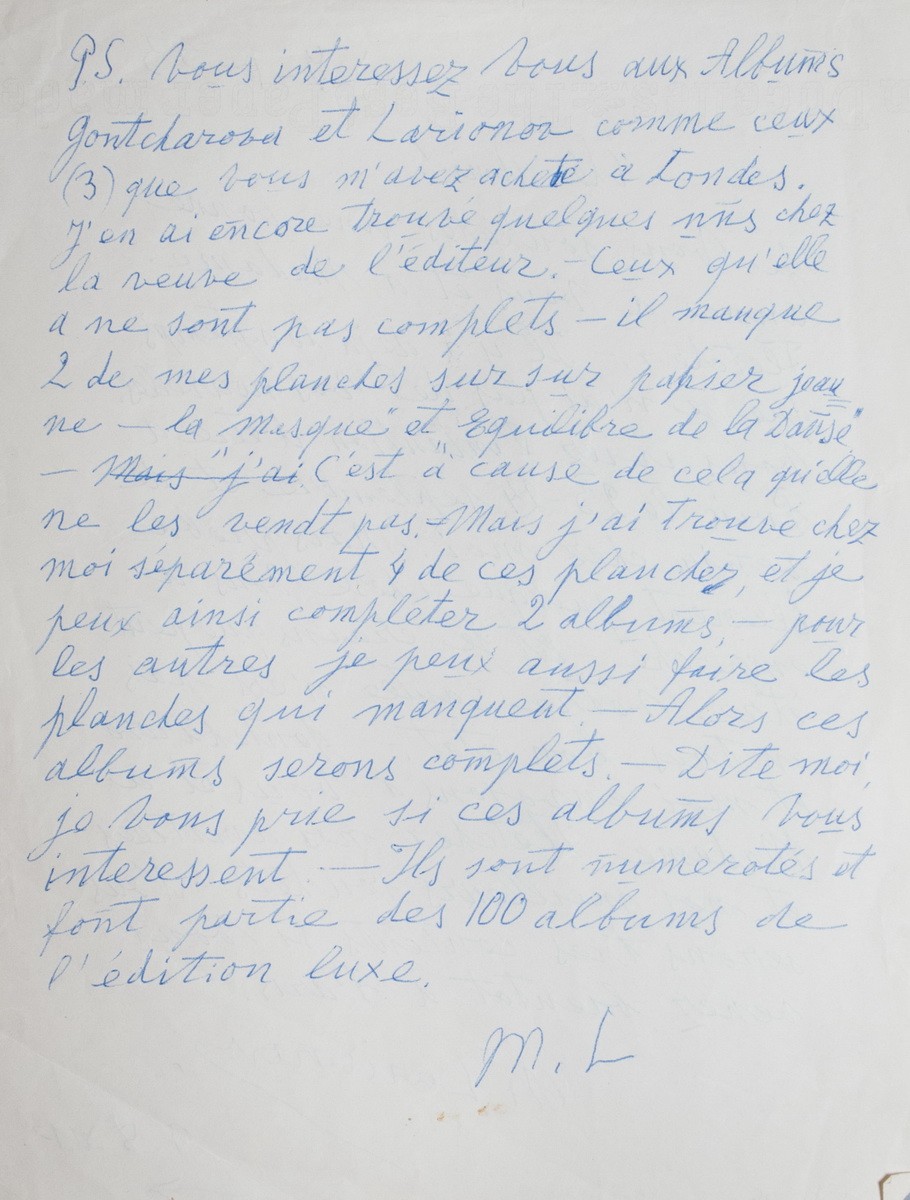 P.S. Vous interessez vous aux Albums
Gontcharova et Larionov comme ceux
(3) que vous m'avez acheté a Londes.
J'en ai encore trouvé quelques uns chez
la veuve de l'éditeur. – Ceux qu'elle
a ne sont pas complets – il manque
2 de mes planches sur sur papier jeau
ne – la Masque" et "Equilibre de la Danse"
– Mais j'ai C'est à cause de cela qu'elle
ne les vendt pas. – Mais j'ai trouvé chez
moi séparément 4 de ces planches, et je
peux ainsi compléter 2 albums, – pour
les autres je peux aussi faire les
planches qui manquent. – Alors ces
albums serons complets. – Dite moi,
je vous prie si ces albums vous
interessent. – Ils sont numerotés et
font partie des 100 albums de
l'édition luxe.
M. L